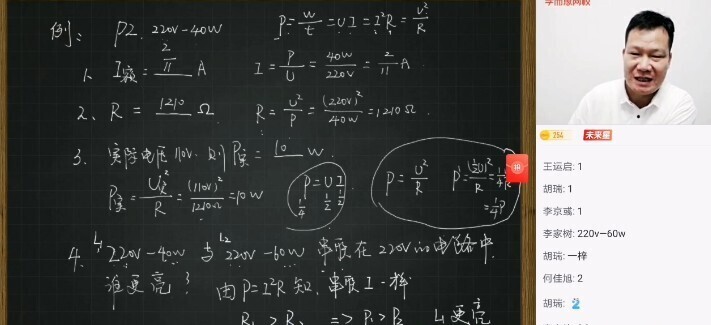 例: PZ 220V-40W P=W/t=UI=I²R=U²/R
1. I额= 2/11 A I=P/U=40W/220V=2/11 A
2. R= 1210 Ω R=U²/P=(220V)²/40W=1210Ω
3. 实际电压110V.则P实= 10 W
P实=U实²/R=(110V)²/1210Ω=10W
P=UI
1/4 1/2 1/2
P=U²/R P'=(1/2U)²/R=1/4
=1/4P
4. L1 220V-40W 与 L2 220V-60W 串联在220V的电路中.
谁更亮? 由P=I²R知. 串联I一样
R1>R2 => P1>P2 L1更亮
254
未来星
王运启: 1
胡瑞: 1
李京彧: 1
李家树: 220v—60w
胡瑞: 一样
何佳旭: 2
胡瑞: